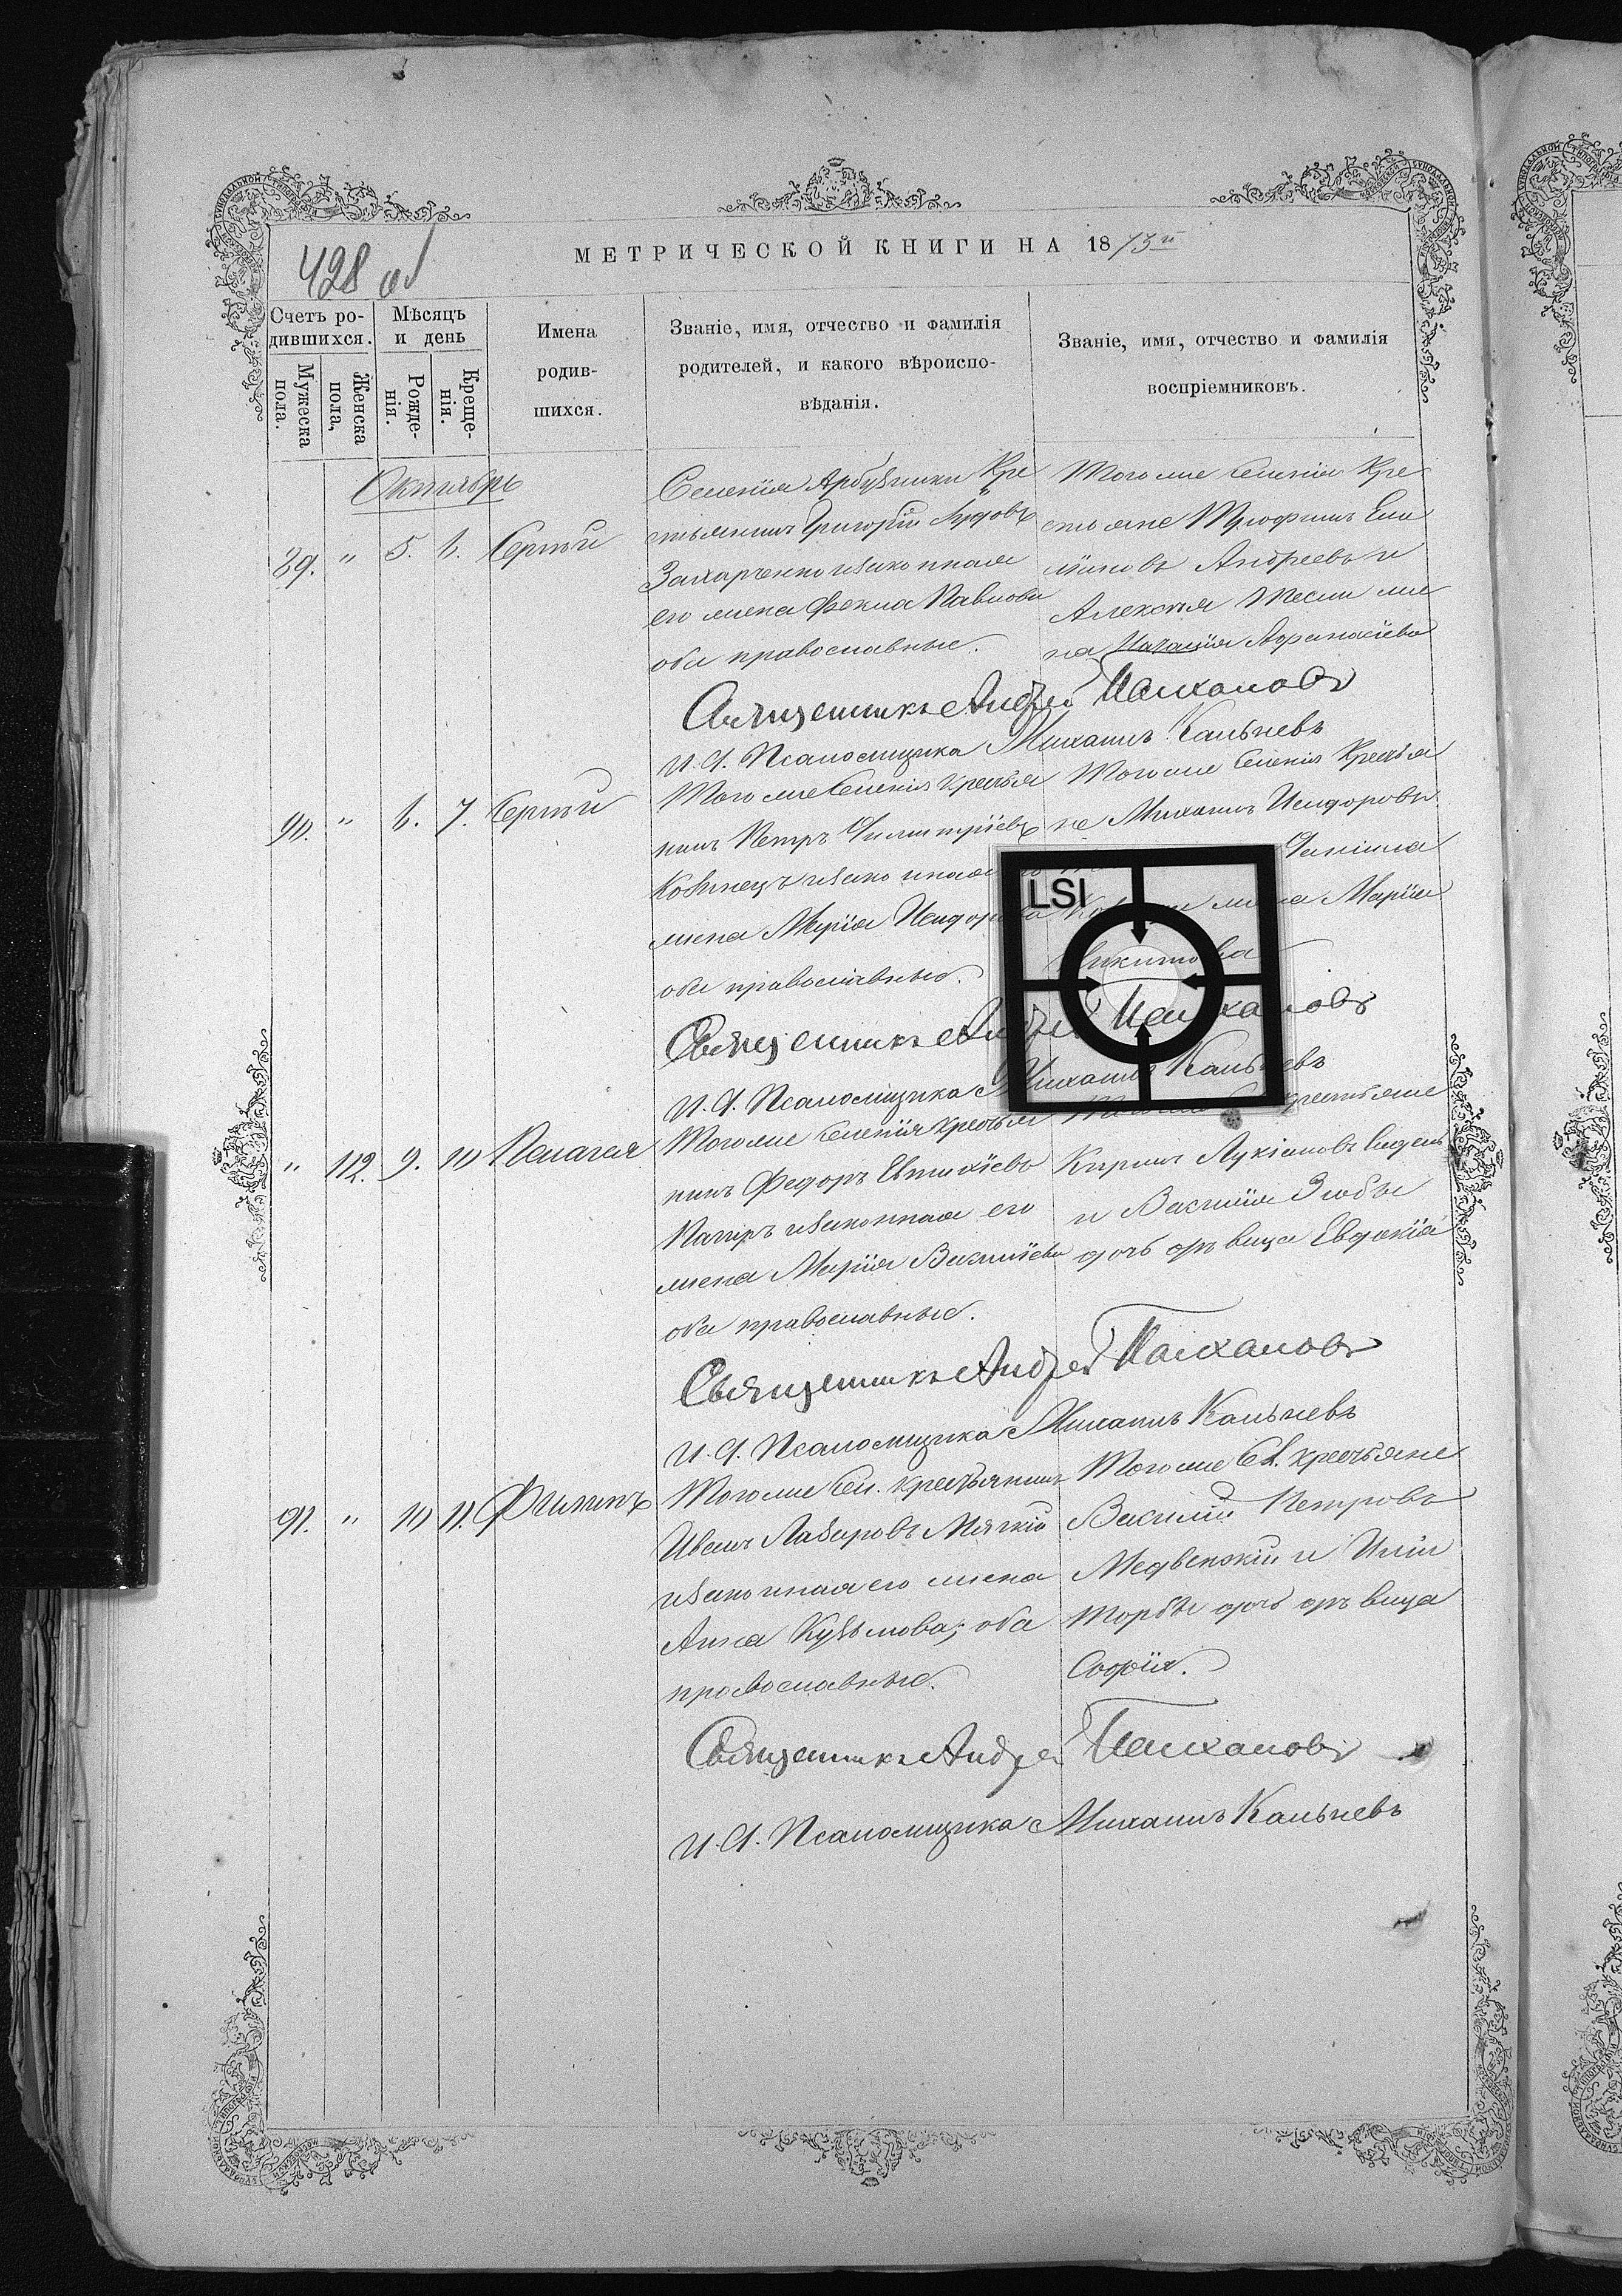 428 об
МЕТРИЧЕСКОЙ КНИГИ НА 1873й
Счетъ родившихся.
Мужеска пола.
Женска пола,
Мѣсяцъ и день
Рожденія.
Крещенія.
Имена родившихся.
Званіе, имя, отчество и фамилія родителей, и какого вѣроисповѣданія.
Званіе, имя, отчество и фамилія воспріемниковъ.
Октябрь
89. " 5. 6. Сергѣй
Селенія Арбузинки Кре
стьянинъ Григорій
Захарченко и законная
его жена Фекла Павлова
оба православные.
Того же Селенія Кре
стьяне Трофимъ Еми
ліановъ Андреевъ и
Алексѣя жe
на Афанасіева
Священникъ Андрей
И. Д. Псаломщика Михаилъ Кальневъ
90. " 6. 7. Сергѣй
Того же Селенія крестья
нинъ Петръ Димитріевъ
и законная
жена Марія Исидорова
оба православные.
Того же Селенія Крестья
не Михаилъ Исидоровъ
Даніила
жена Марія
Никитова
Священникъ Андрей
И. Д. Псаломщика Михаилъ Кальневъ
" 112. 9. 10 Пелагея
Того же Селенія крестья
нинъ Федоръ Евтихіевъ
и законная его
жена Марія Василіева
оба православные.
крестьяне
Кирилъ Лукіановъ
и Василія
дочь дѣвица Евдокія
Священникъ Андрей
И. Д. Псаломщика Михаилъ Кальневъ
91. " 10 11. Филиппъ
Того же Сел. крестьянинъ
Иванъ Лазаровъ Мягкій
и законная его жена
Анна Кузьмова; оба
православные.
Того же Сел. крестьяне
Василій Петровъ
и Иліи
дочь дѣвица
Софія.
Священникъ Андрей
И. Д. Псаломщика Михаилъ Кальневъ
LSI